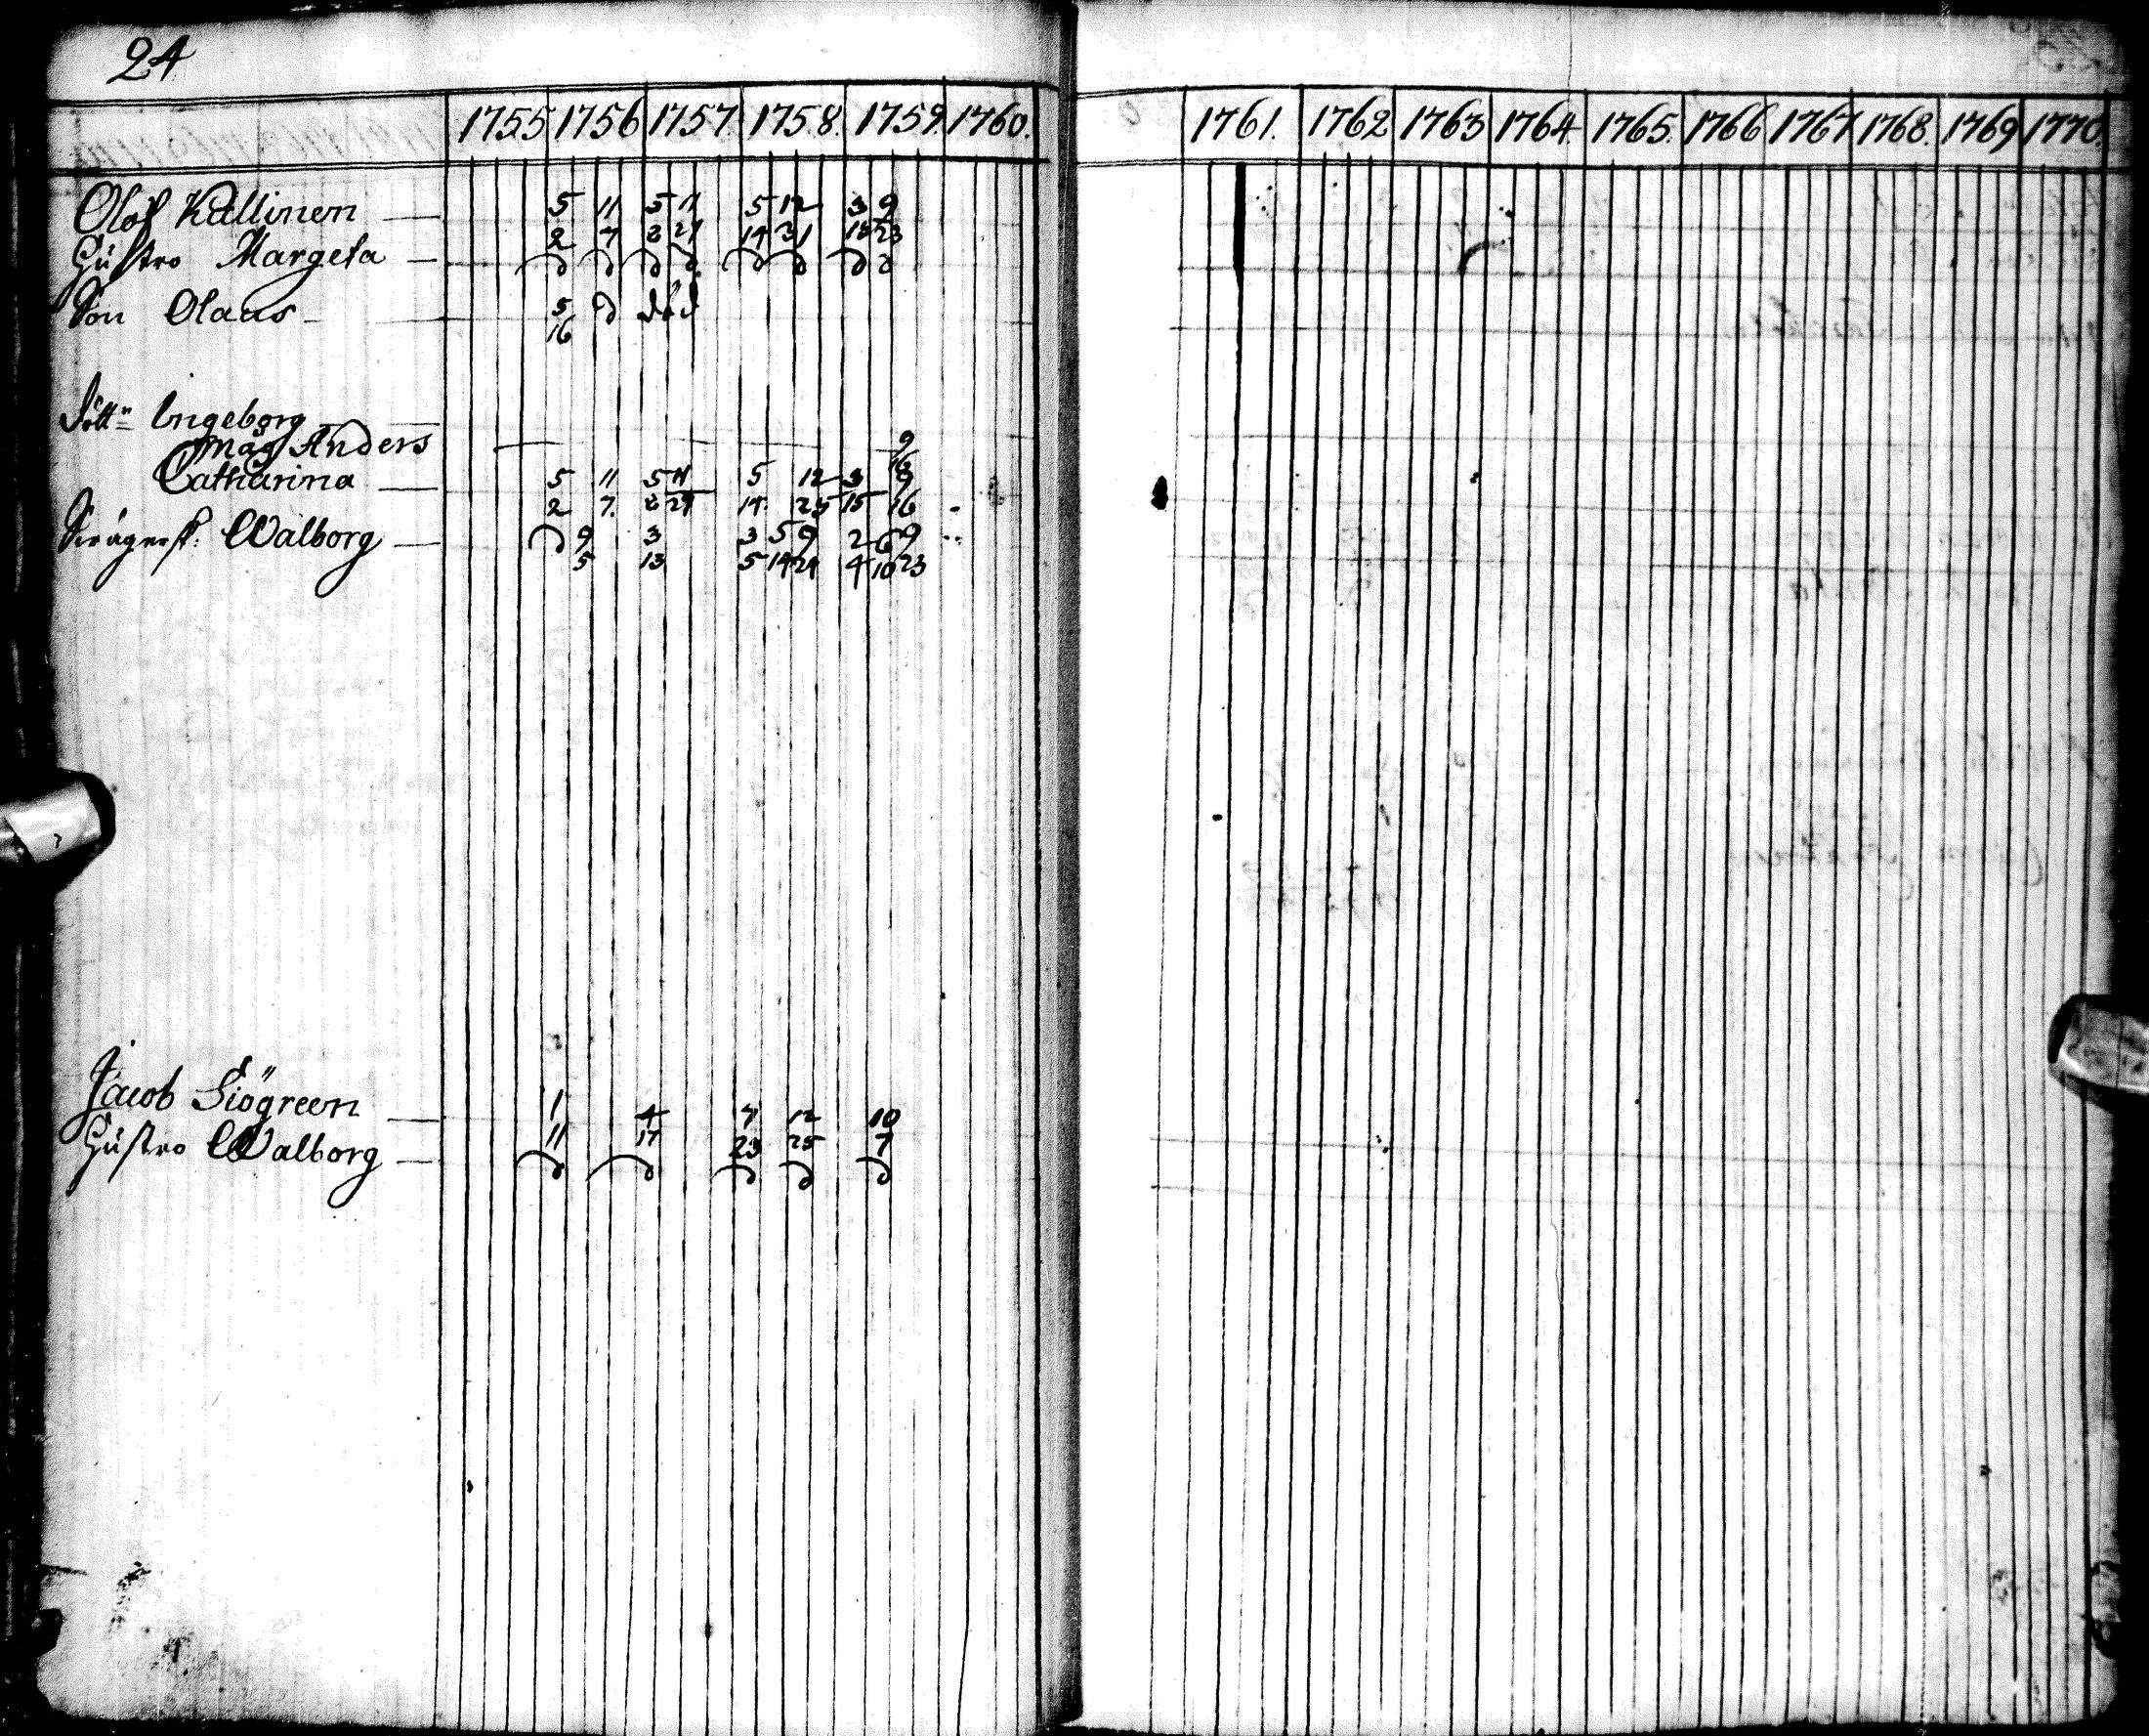 24
1755 1756 1757. 1758. 1759. 1760. 1761. 1762 1763 1764. 1765. 1766 1767 1768. 1769 1770.
Olof Kallinen 5 11 5 11 5 12 3 9
2 7 2 27 14 31 15 23
Hustro Margeta
Son Olaus 5 död
16
dåttr Ingeborg
måg Anders 9
16
Catharina 5 11 5 11 5 12 3 9
2 7. 2 27 14. 25 15 16
Swägersk: Walborg 9 3 3 5 9 2 6 9
5 13 5 14 24 4 10 23
Jacob Siögreen 1 4 7 12 10
11 17 23 25 7
Hustro Walborg